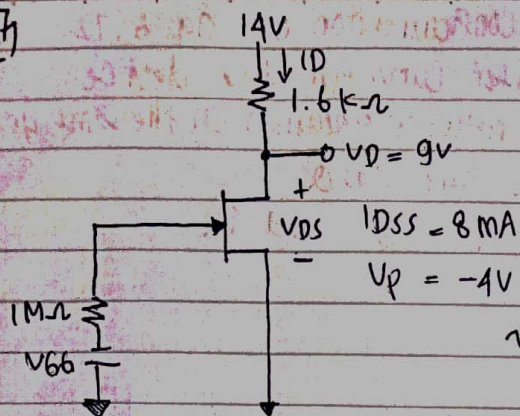 7)
14V
↓ ID
1.6kΩ
VD = 9V
+
VDS
IDSS = 8 mA
−
VP = -4V
1MΩ
VGG